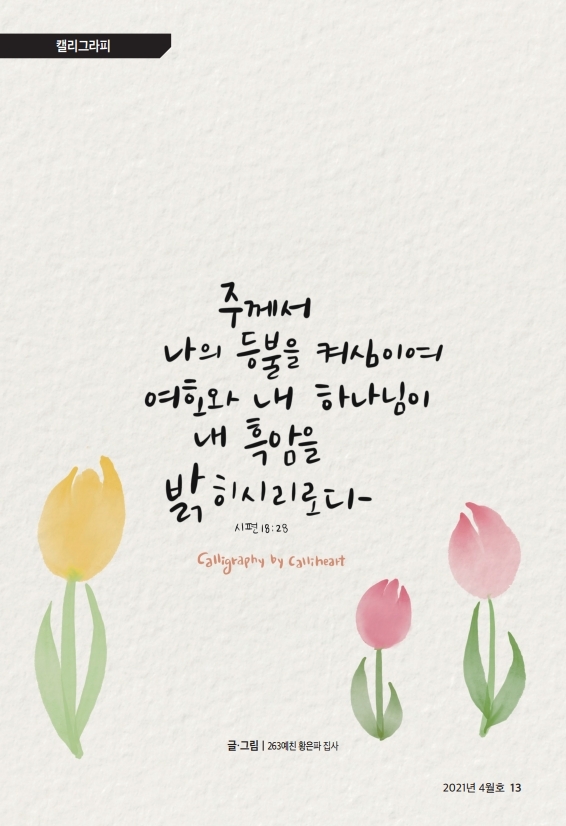 캘리그라피
주께서
나의 등불을 켜심이여
여호와 내 하나님이
내 흑암을
밝히시리로다
시편 18:28
Calligraphy by Calliheart
글·그림 | 263예친 황은파 집사
2021년 4월호 13